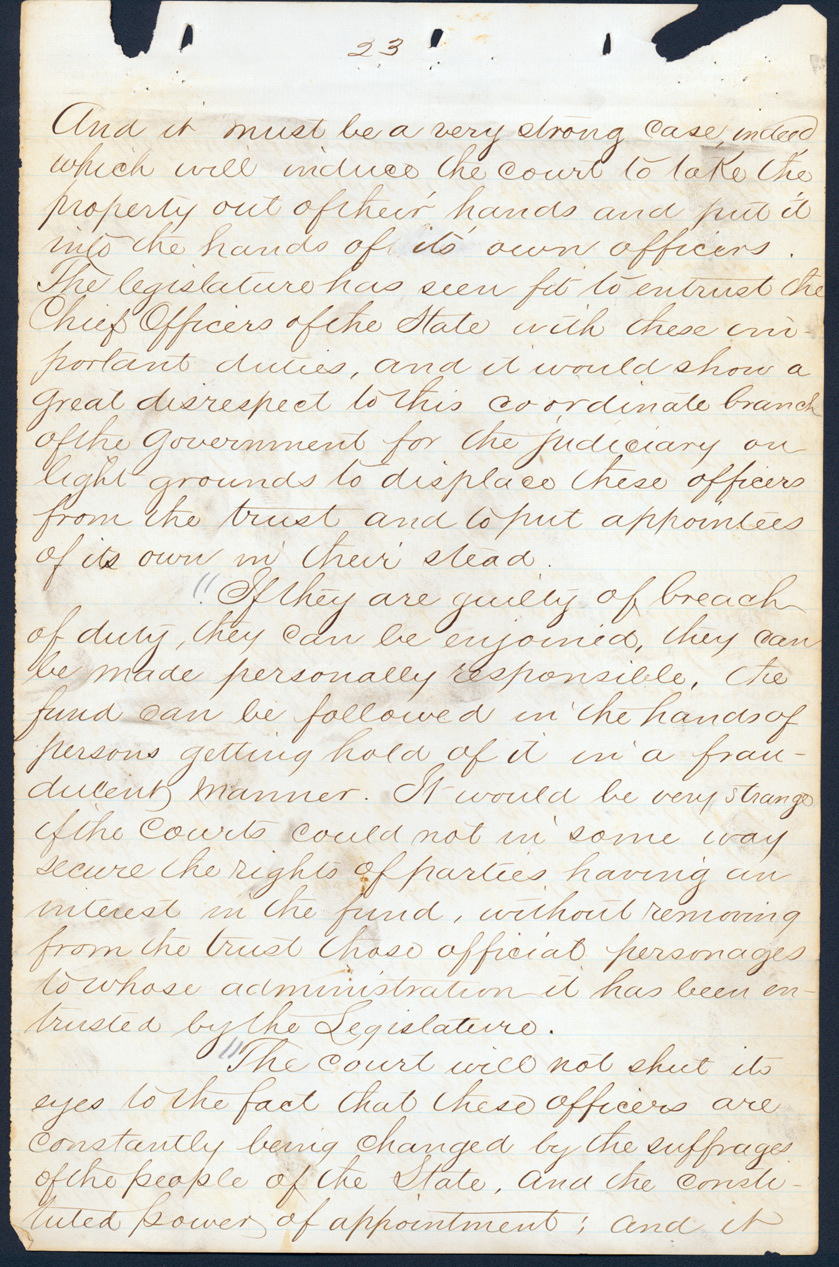 23
And it must be a very strong case, indeed
which will induce the court to take the
property out of their hands and put it
into the hands of its own officers.
The legislature has seen fit to entrust the
Chief Officers of the State with these im-
portant duties, and it would show a
great disrespect to this coordinate branch
of the Government for the judiciary on
light grounds to displace these officers
from the trust and to put appointees
of its own in their stead.
"If they are guilty of breach
of duty, they can be enjoined, they can
be made personally responsible, the
fund can be followed in the hands of
persons getting hold of it in a frau-
dulent manner. It would be very strange
if the Courts could not in some way
secure the rights of parties having an
interest in the fund, without removing
from the trust those official personages
to whose administration it has been en-
trusted by the Legislature.
"The court will not shut its
eyes to the fact that these officers are
constantly being changed by the suffrages
of the people of the State, and the consti-
tuted power of appointment; and it